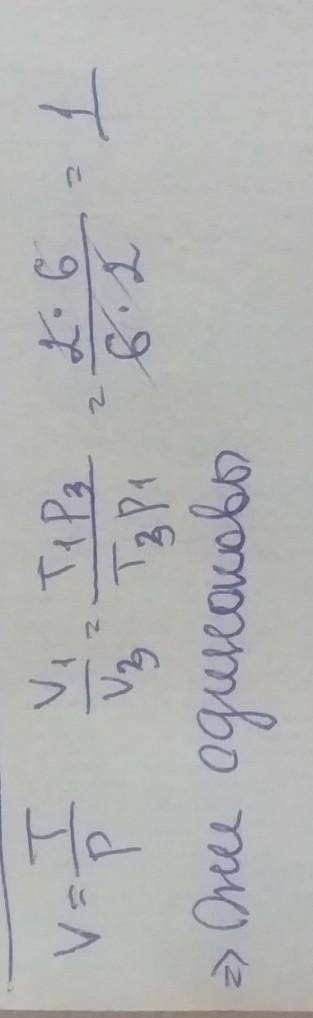 V = T/P   V₁/V₃ = T₁P₃/T₃P₁ = 2·6/6·2 = 1
=> Они одинаковы